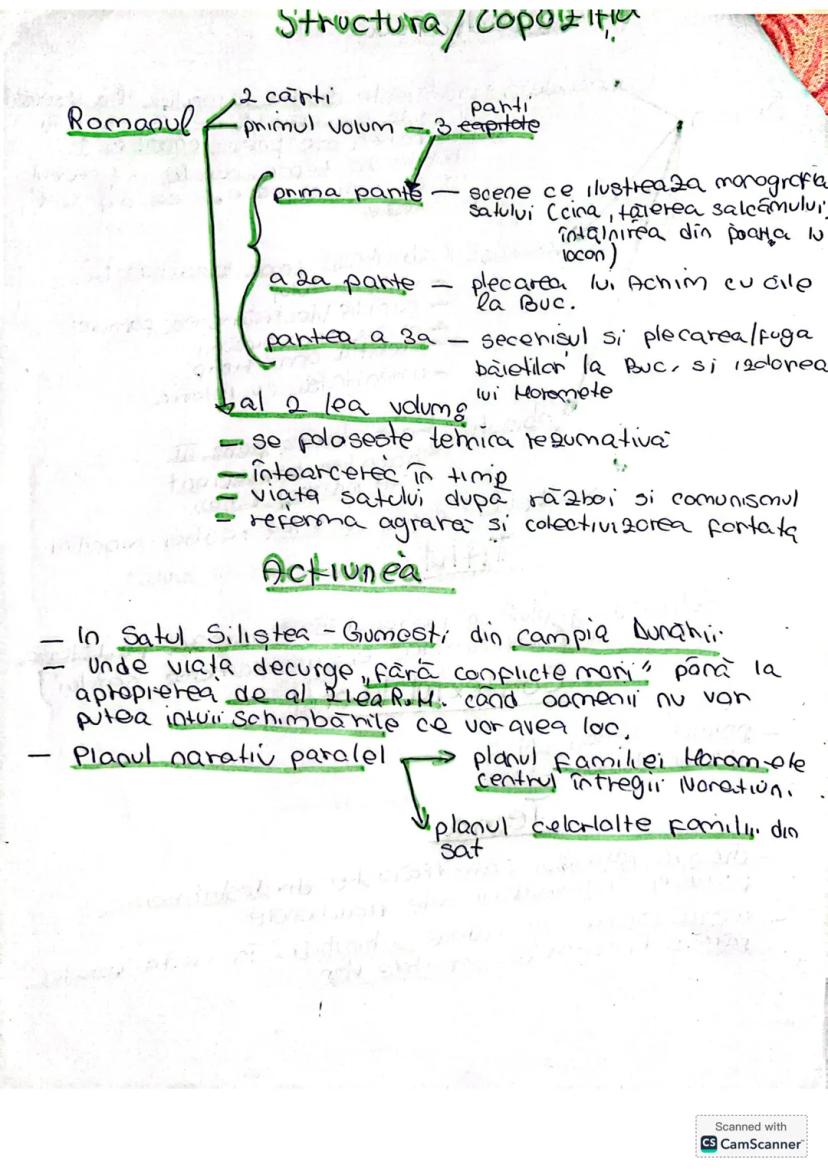 Structura/Copoziția
2 cărti
Romanul
primul volum – 3 capitole
parti
prima parte – scene ce ilustreaza monografia
satului (cina, tăierea salcâmului,
întâlnirea din poiana lu
Iocan)
a 2a parte – plecarea lui Achim cu oile
la Buc.
partea a 3a – secerisul si plecarea/fuga
băietilor la Buc. si izolarea
lui Moromete
al 2 lea volum:
– se foloseste tehnica rezumativă
– întoarcerea în timp
– viata satului după război si comunismul
– reforma agrara si colectivizarea fortata
Actiunea
– In Satul Siliștea – Gumesti din campia Dunării.
– Unde viața decurge „fără conflicte mari" până la
apropierea de al 2lea R.M. când oamenii nu vor
putea intuii schimbările ce vor avea loc.
– Planul narativ paralel
planul familiei Moromete
centrul întregii Naratiuni.
planul celorlalte familii din
sat
Scanned with
CS CamScanner